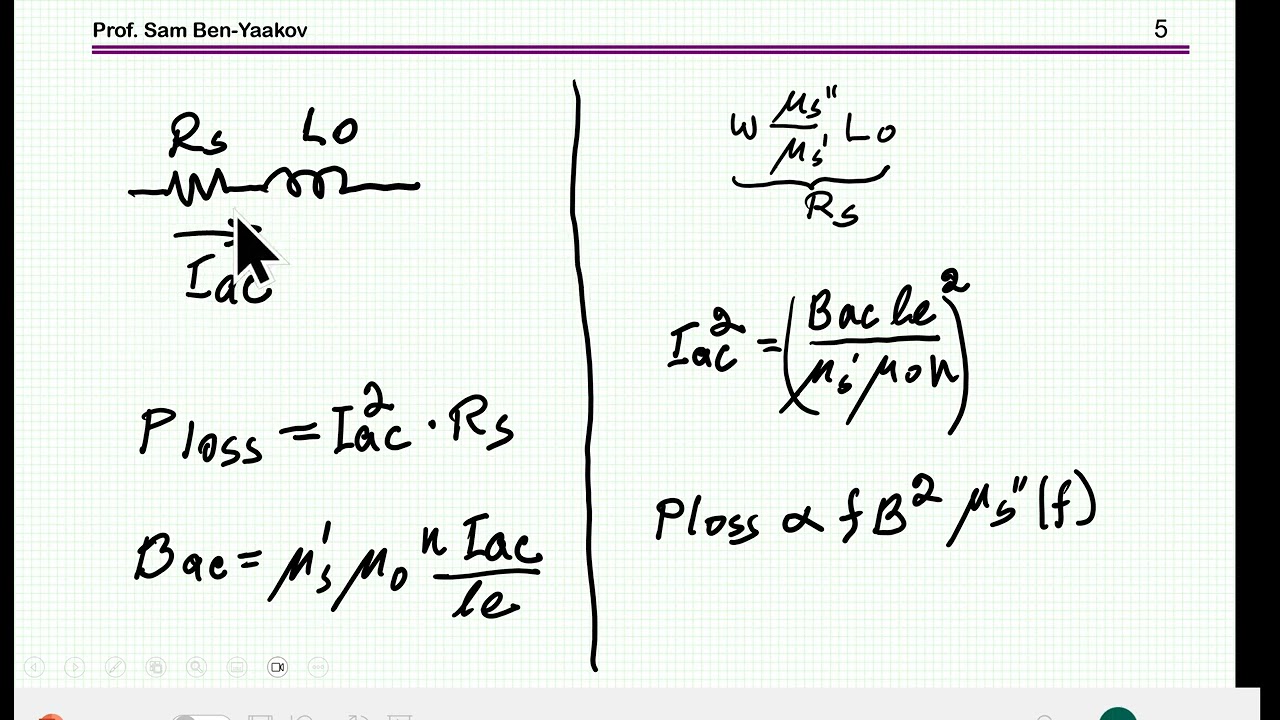 Prof. Sam Ben-Yaakov
5
Rs Lo
Iac
Ploss = Iac² · Rs
Bac = μs' μo n Iac / le
ω μs'' / μs' Lo
Rs
Iac² = (Bac le / μs' μo n)²
Ploss ∝ f B² μs'' (f)